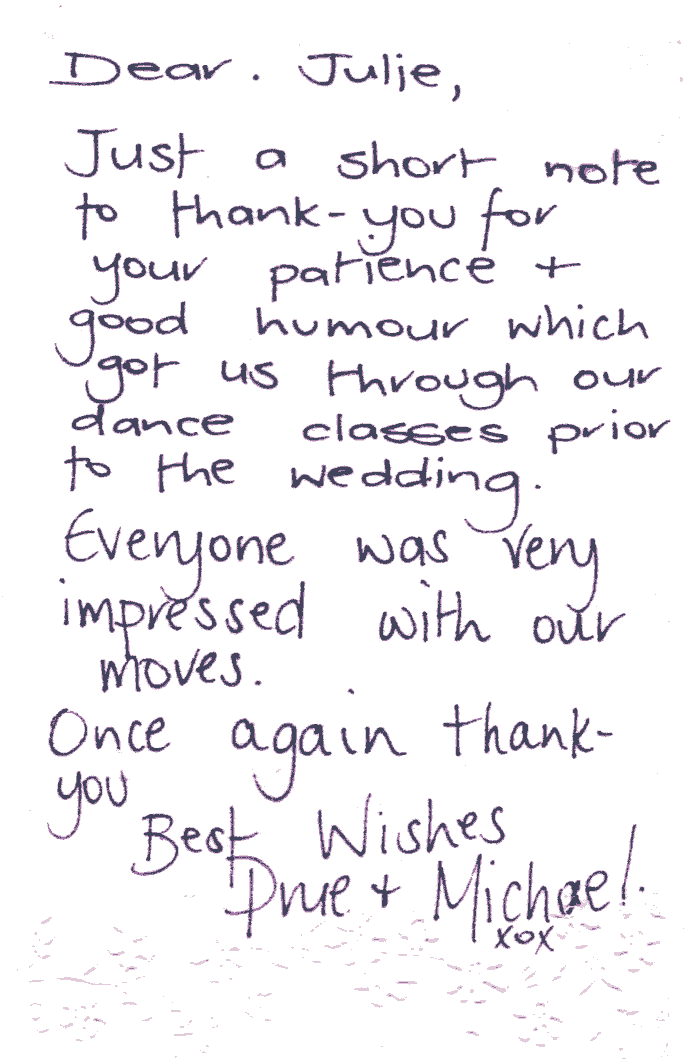 Dear. Julie,
Just a short note
to thank-you for
your patience +
good humour which
got us through our
dance classes prior
to the wedding.
Everyone was very
impressed with our
moves.
Once again thank-
you
Best Wishes
Prue + Michael.
xox